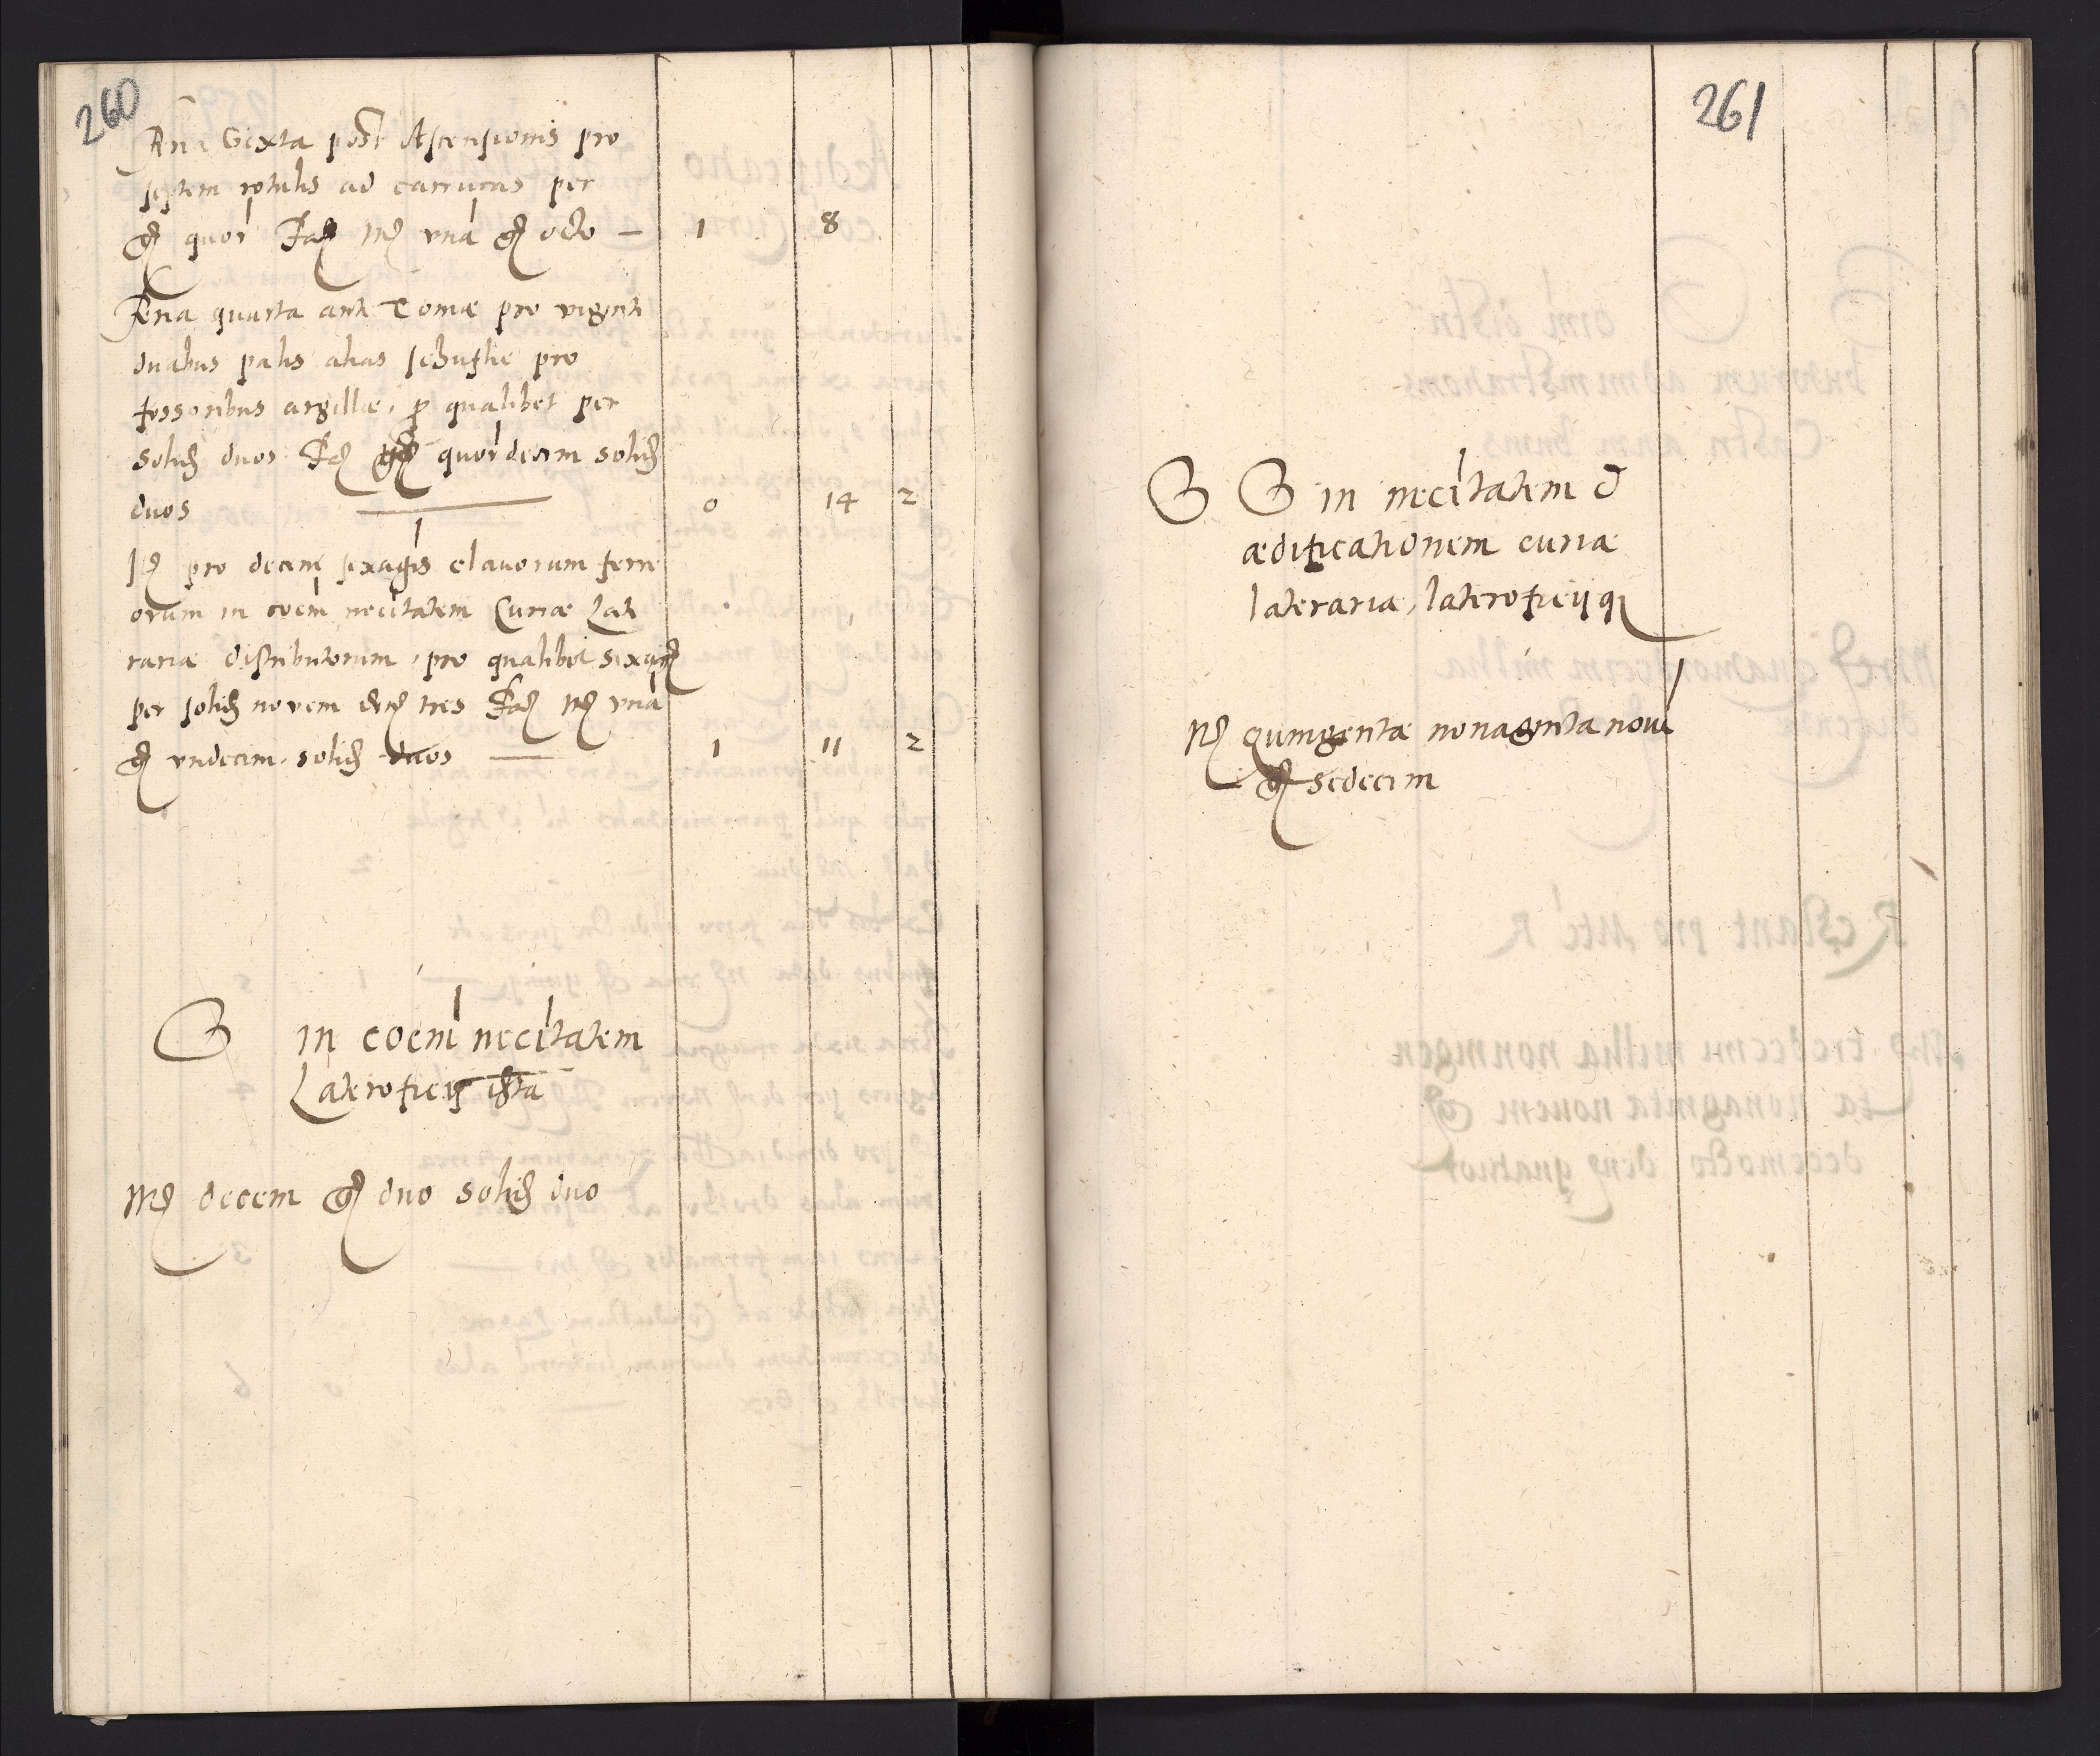 260
Feria Sexta post Ascensionis pro
septem rotulis ad carrucas per
gr quor Fac Mr vna gr octo — 1 8
Feria quarta ante Tomæ pro viginti
duabus palis alias schufflie pro
fossoribus argillæ, p qualibet per
solid duos Fac gr quordecim solid
duos — 0 14 2
It pro decem sexagis clauorum ferre
orum in coem necitatem Curiæ Late
rariæ distributorum, pro qualibet sexag
per solid novem den tres Fac Mr vna
gr vndecim solid duos — 1 11 2
S in coem necitatem
Lateroficij ista
Mr decem gr duo solid duo
261
S S in necitatem et
ædificationem curiæ
laterariæ, lateroficijq
Mr quingentæ nonaginta novem
gr sedecim